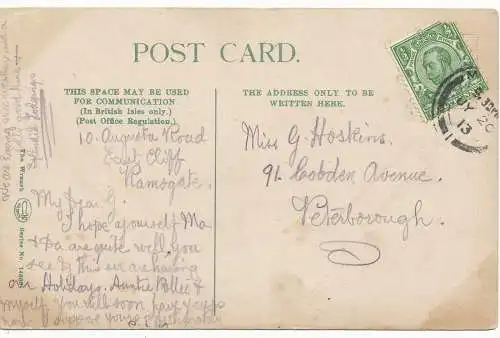 POST CARD.
THIS SPACE MAY BE USED
FOR COMMUNICATION
(In British Isles only.)
(Post Office Regulation.)
THE ADDRESS ONLY TO BE
WRITTEN HERE.
10. Augusta Road
East Cliff
Ramsgate.
My Dear G.
I hope yourself Ma
& Da are quite well, you
see by this we are having
our Holidays. Auntie Pollie &
myself. You will soon
now I suppose yours
Miss G Hoskins.
91. Cobden Avenue.
Peterborough.
We are having nice weather and a
good time
splendid lodgings
The Wyndum
Series No.
JY
13